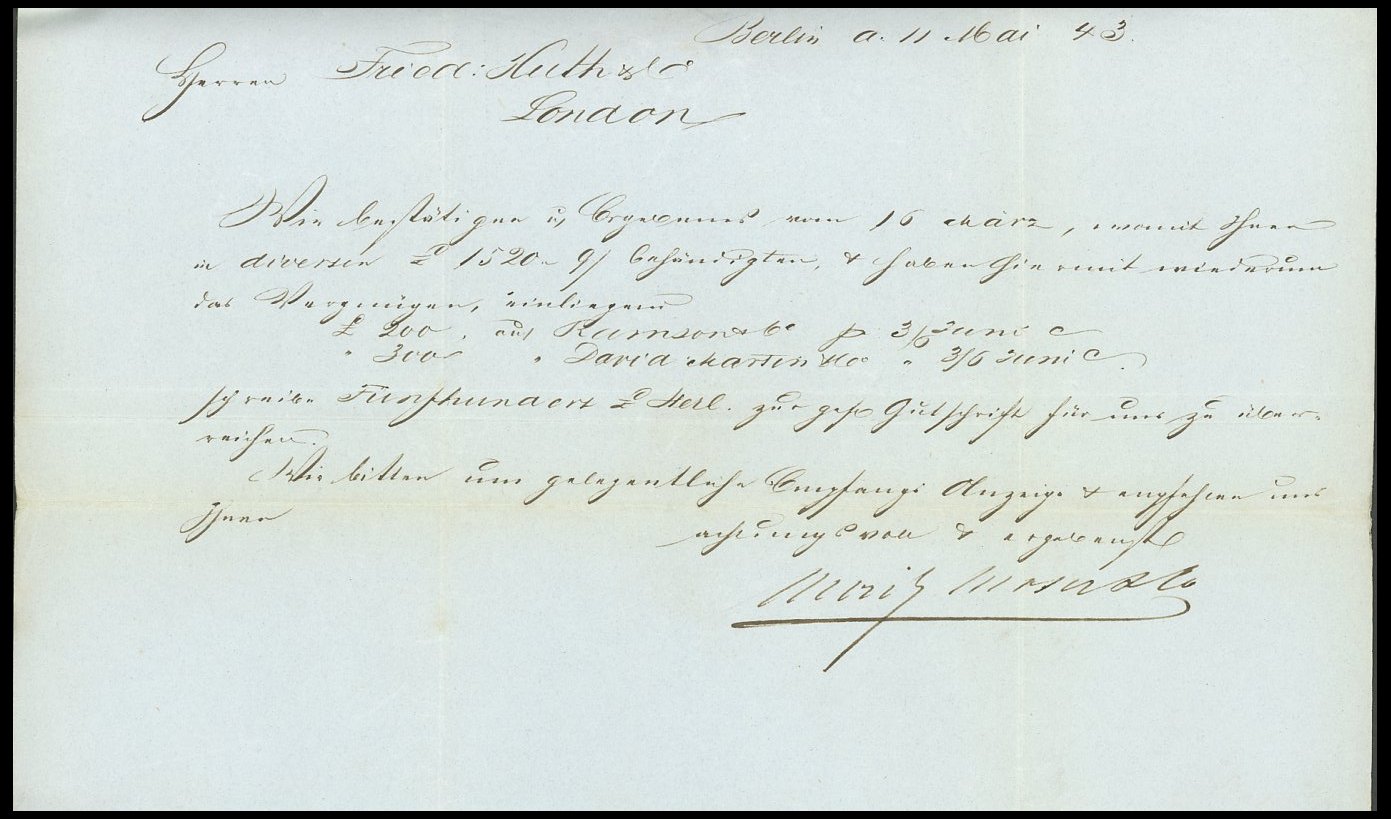 Berlin a. 11 Mai 43.
Herren Fried: Huth & Co
London
Wir bestätigen u/ Ergebenes vom 16 März, womit Ihnen
in diversen £ 1520 " 9/ behändigten, & haben hiermit wiederum
das Vergnügen, einliegend
£ 200 " auf Ramson & Co p 3/6 Juni c
" 300 " " David Martin & Co " 3/6 Juni c.
schreibe Fünfhundert £ Sterl. zur gefl Gutschrift für uns zu über-
reichen.
Wir bitten um gelegentliche Empfangs Anzeige & empfehlen uns
Ihnen
achtungsvoll & ergebenst
Moritz & Co